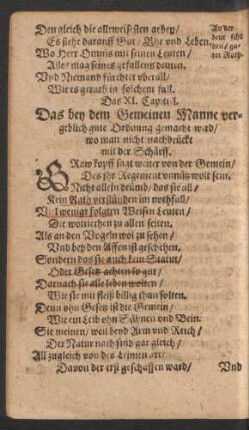 Den gleich die allweißsten geben/
Es stehe darauff Gut/ Ehr und Leben.
Wo Herr Omnis mit seinen Leuten/
Alles mag seines gefallens deuten.
Und Niemand fürchtet uberall/
Wie es gerath in solchem fall.
An der
Das XI. Capitel.
Das bey dem Gemeinen Manne ver-
geblich gute Ordnung gemacht wird/
wo man nicht nachdrückt
mit der Schärff.
Graw kopff sagt weiter von der Gemein/
Des ihr Regiment unnütz wolt sein.
Nicht allein drumb/ das sie all/
Kein Rath verstünden im nothfall/
Und wenigr folgten Weisen Leuten/
Als an den Vogeln wol zu sehen/
Und bey den Affen ist geschehen.
Sondern das sie auch kein Statut/
Oder Gesetz achten so gut/
Darnach sie alle leben wolten/
Wie sie mit fleiß billig thun solten.
Denn ohn Gesetz ist die Gemein/
Wie ein Leib ohn Sähnen und Bein.
Sie meinen/ weil beyd Arm und Reich/
Der Natur nach sind gar gleich/
All zugleich von des Leimen art/
Davon der erst geschaffen ward/
Und